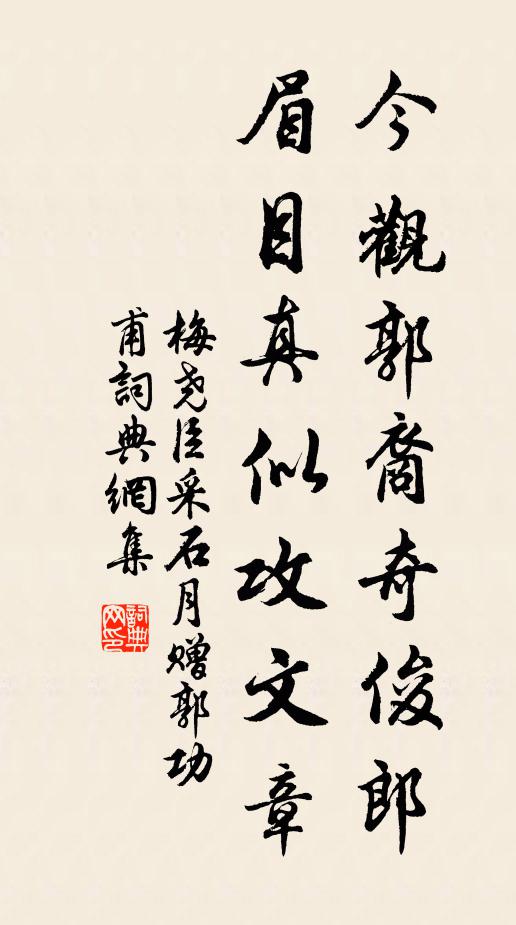 今觀郭裔奇俊郎
眉目真似攻文章
梅尧臣采石月赠郭功
甫詞典網集
詞典
网印